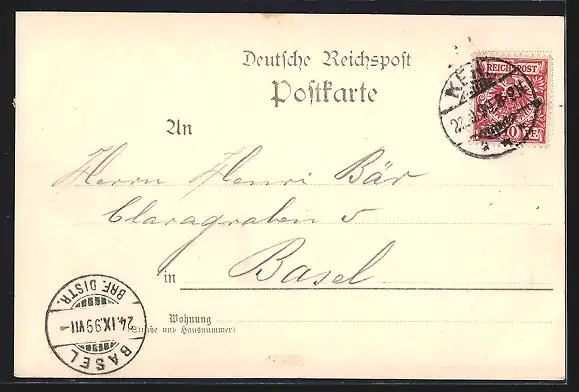 Deutsche Reichspost
Postkarte
REICHSPOST
An
Herrn Henri Bär
Claragraben 5
in Basel
Wohnung
(Straße und Hausnummer)
BRF. DISTR.
24.IX.99 VII
BASEL